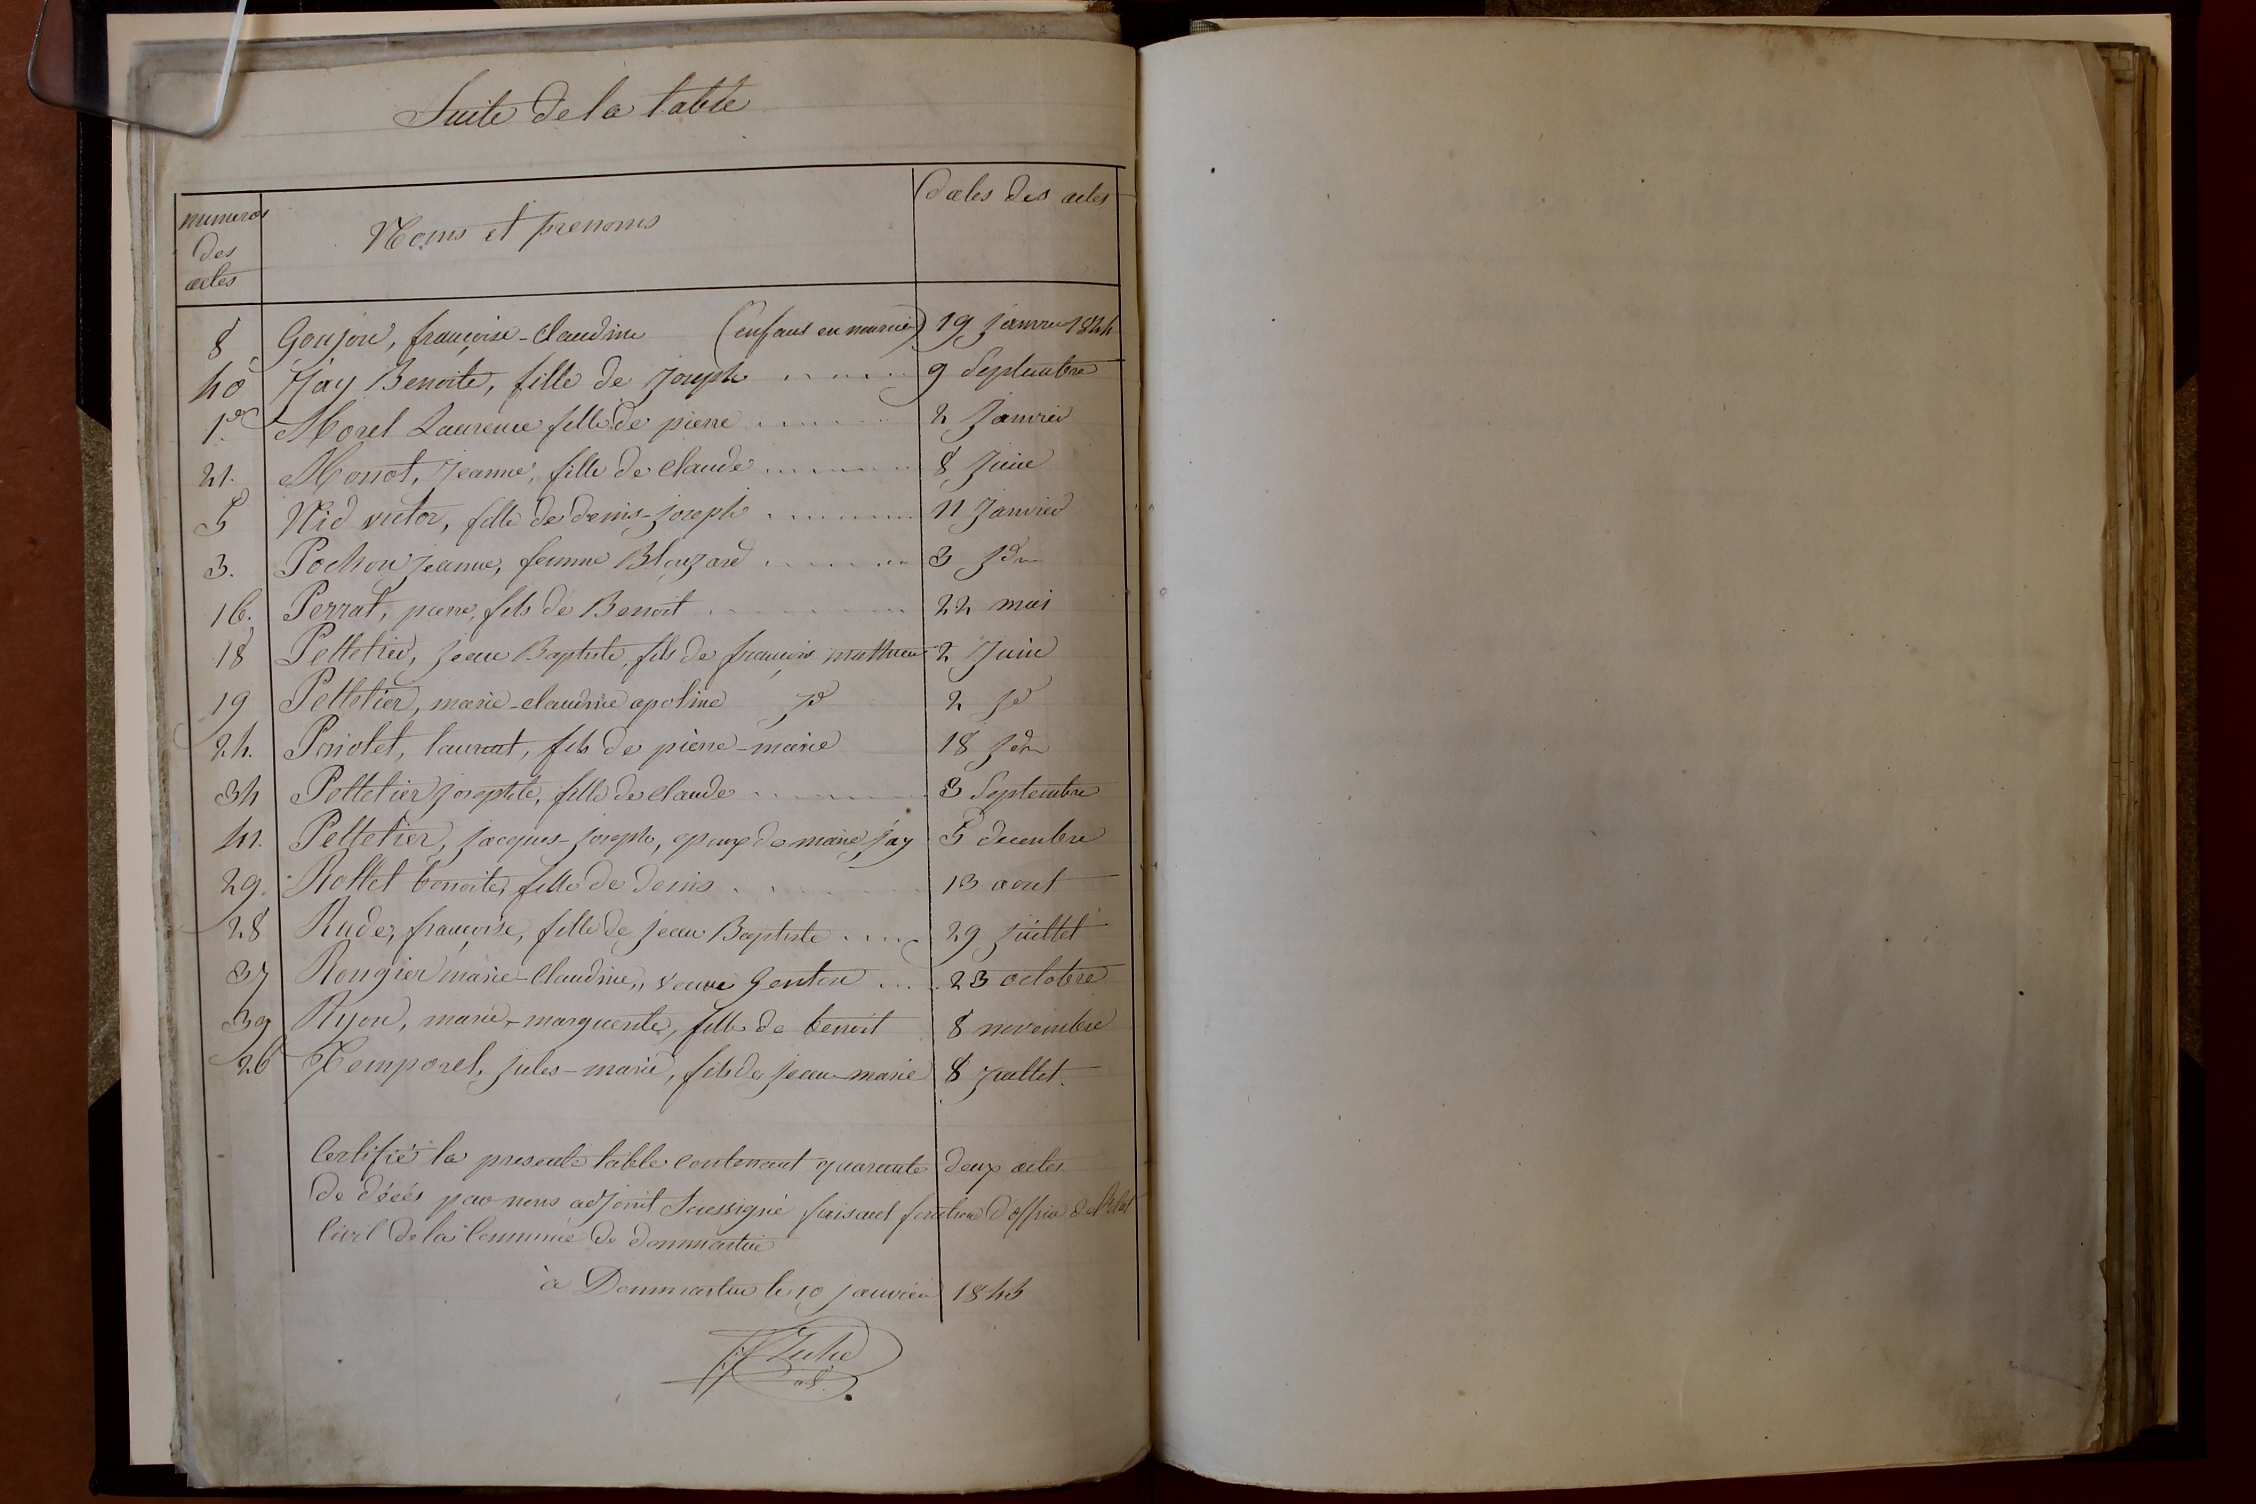 Suite de la table
numeros des actes
Noms et prenoms
Dates des actes
8 Goujon, françoise-Claudine (enfant en nourrice) 19 janvier 1844
40 Jay Benoite, fille de Joseph 9 Septembre
1er Morel Laurence fille de pierre 2 Janvier
21. Monot, Jeanne, fille de Claude 8 Juin
5 Nid victor, fille de denis-Joseph 11 Janvier
3. Pochon Jeanne, femme Blouzard 3 Idm
16. Perrat, pierre, fils de Benoit 22 mai
18 Pelletier, Jean Baptiste, fils de françois mathieu 2 Juin
19 Pelletier, marie-claudine apoline Id 2 Id
24. Poriotet, laurent, fils de pierre-marie 18 Idm
34 Pelletier Josephte, fille de Claude 3 Septembre
41. Pelletier, Jacques-Joseph, epoux de marie Jay 5 decembre
29. Rottet benoite, fille de denis 13 aout
28 Rude, françoise, fille de Jean Baptiste 29 juillet
37 Rougier marie-Claudine, veuve Genton 23 octobre
39 Ryon, marie-marguerite, fille de benoit 8 novembre
26 Temporel, Jules-marie, fils de Jean-marie 8 Juillet.
Certifié la presente table contenant quarante deux actes
de décés par nous adjoint Soussigné faisant fonction d'officier de l'Etat
Civil de la Commune de dommartin
à Dommartin le 10 janvier 1845